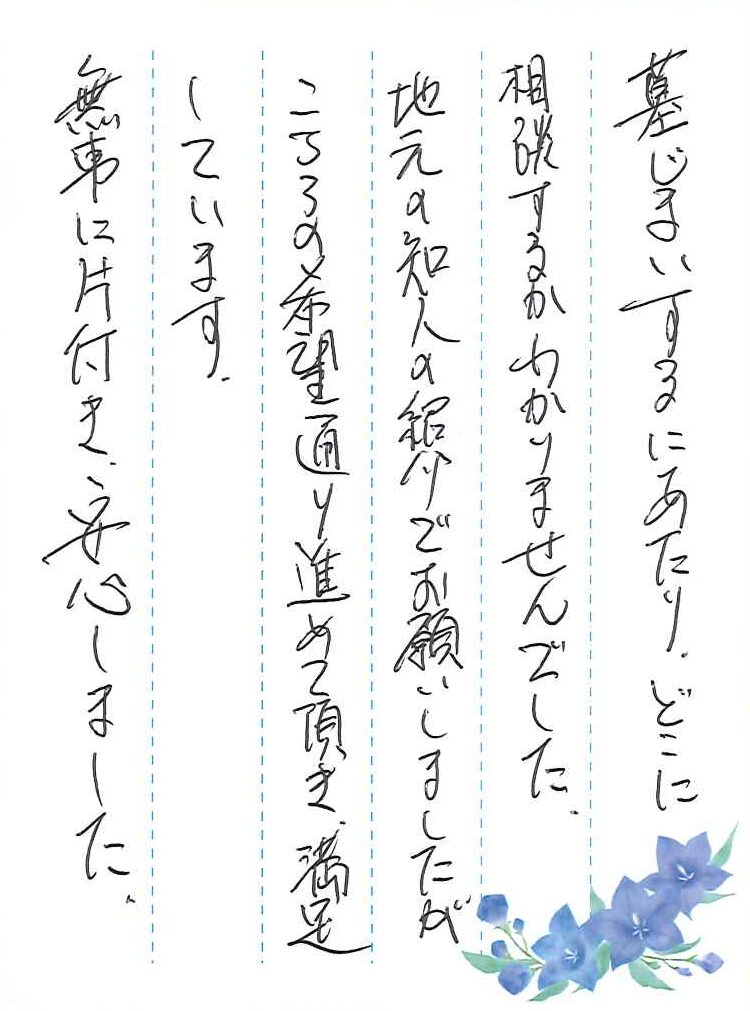 墓じまいするにあたり、どこに
相談するかわかりませんでした。
地元の知人の紹介でお願いしましたが
こちらの希望通り進めて頂き、満足
しています。
無事に片付き、安心しました。